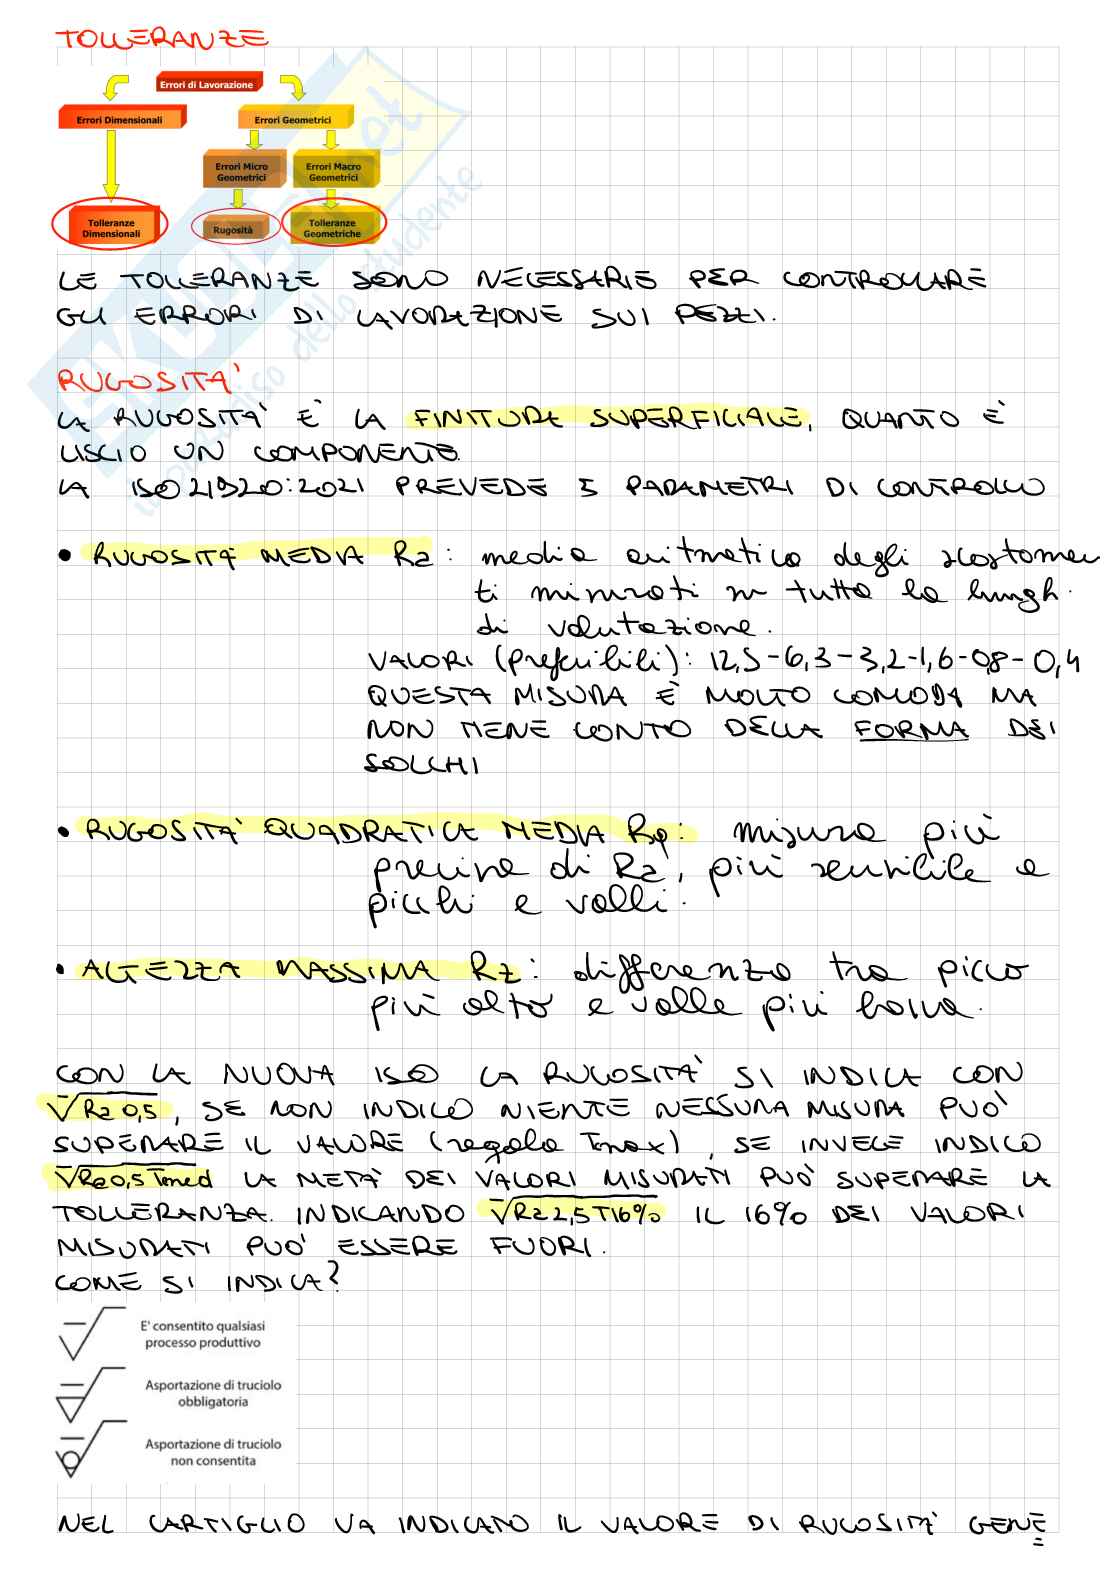 TOLLERANZE
Errori di Lavorazione
Errori Dimensionali
Errori Geometrici
Errori Micro Geometrici
Errori Macro Geometrici
Tolleranze Dimensionali
Rugosità
Tolleranze Geometriche
LE TOLLERANZE SONO NECESSARIE PER CONTROLLARE
GLI ERRORI DI LAVORAZIONE SUI PEZZI.
RUGOSITA'
LA RUGOSITA' E' LA FINITURA SUPERFICIALE, QUANTO E'
LISCIO UN COMPONENTE.
LA ISO21920:2021 PREVEDE 3 PARAMETRI DI CONTROLLO
• RUGOSITA' MEDIA Ra: media aritmetica degli scostamen
ti misurati su tutta la lungh.
di valutazione.
VALORI (preferibili): 12,5-6,3-3,2-1,6-0,8-0,4
QUESTA MISURA E' MOLTO COMODA MA
NON TIENE CONTO DELLA FORMA DEI
SOLCHI
• RUGOSITA' QUADRATICA MEDIA Rq: misura più
precisa di Ra, più sensibile a
picchi e valli.
• ALTEZZA MASSIMA Rz: differenza tra picco
più alto e valle più bassa.
CON LA NUOVA ISO LA RUGOSITA' SI INDICA CON
√Ra 0,5, SE NON INDICO NIENTE NESSUNA MISURA PUO'
SUPERARE IL VALORE (regola Tmax), SE INVECE INDICO
√Ra0,5Tmed LA META' DEI VALORI MISURATI PUO' SUPERARE LA
TOLLERANZA. INDICANDO √Ra 2,5T16% IL 16% DEI VALORI
MISURATI PUO' ESSERE FUORI.
COME SI INDICA?
E' consentito qualsiasi
processo produttivo
Asportazione di truciolo
obbligatoria
Asportazione di truciolo
non consentita
NEL CARTIGLIO VA INDICATO IL VALORE DI RUGOSITA' GENE